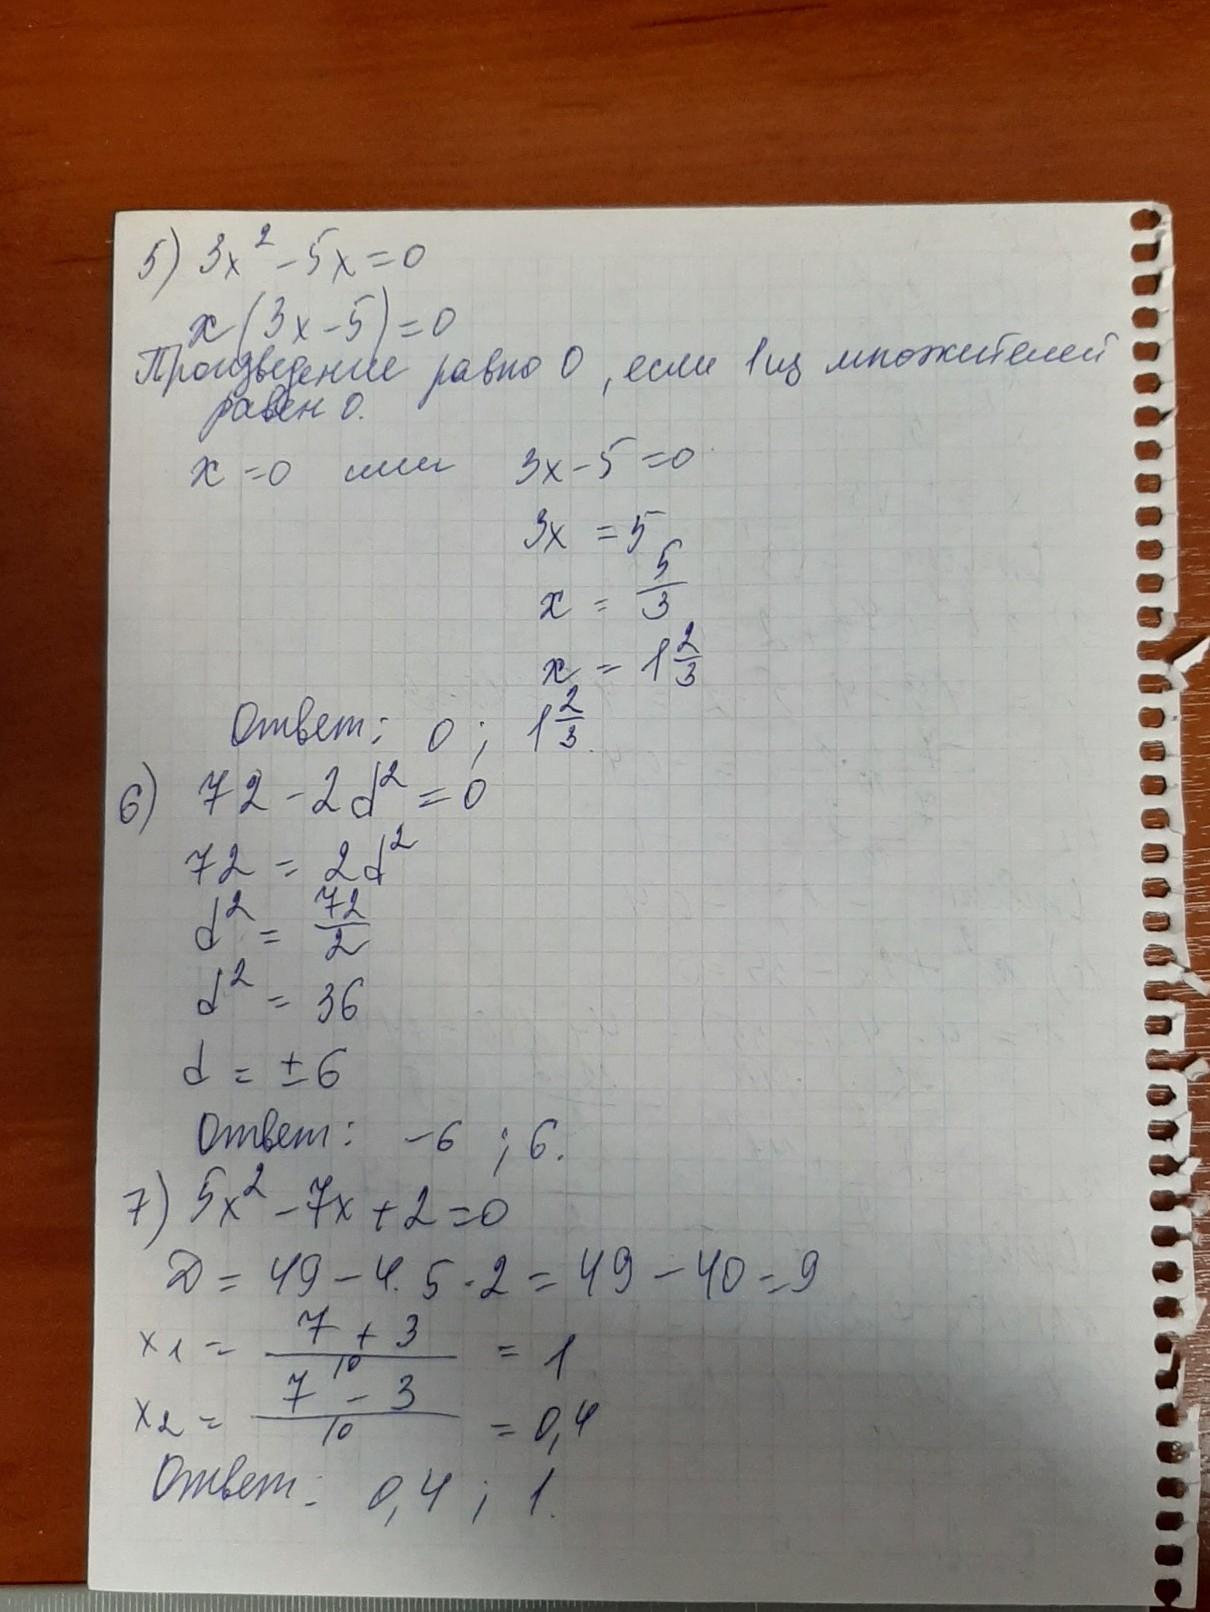 5) 3x² - 5x = 0
x(3x - 5) = 0
Произведение равно 0, если 1 из множителей
равен 0.
x = 0 или 3x - 5 = 0
3x = 5
x = 5/3
x = 1 2/3
Ответ: 0; 1 2/3.
6) 72 - 2d² = 0
72 = 2d²
d² = 72/2
d² = 36
d = ±6
Ответ: -6; 6.
7) 5x² - 7x + 2 = 0
D = 49 - 4·5·2 = 49 - 40 = 9
x1 = (7 + 3)/10 = 1
x2 = (7 - 3)/10 = 0,4
Ответ: 0,4; 1.